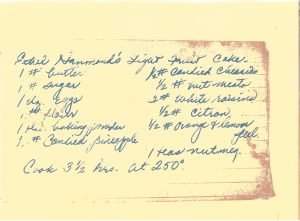 Ethel Hammond's Light Fruit Cake.
1 # butter
1 # sugar
1 dz. Eggs
1 # flour
1 tea. baking powder
1 # Candied pineapple
1/2 # Candied Cherries
1/2 # nut-meats
2 # White raisins
1/2 # Citron
1/2 # Orange & lemon peel
1 teas nutmeg
Cook 3 1/2 hrs. at 250°